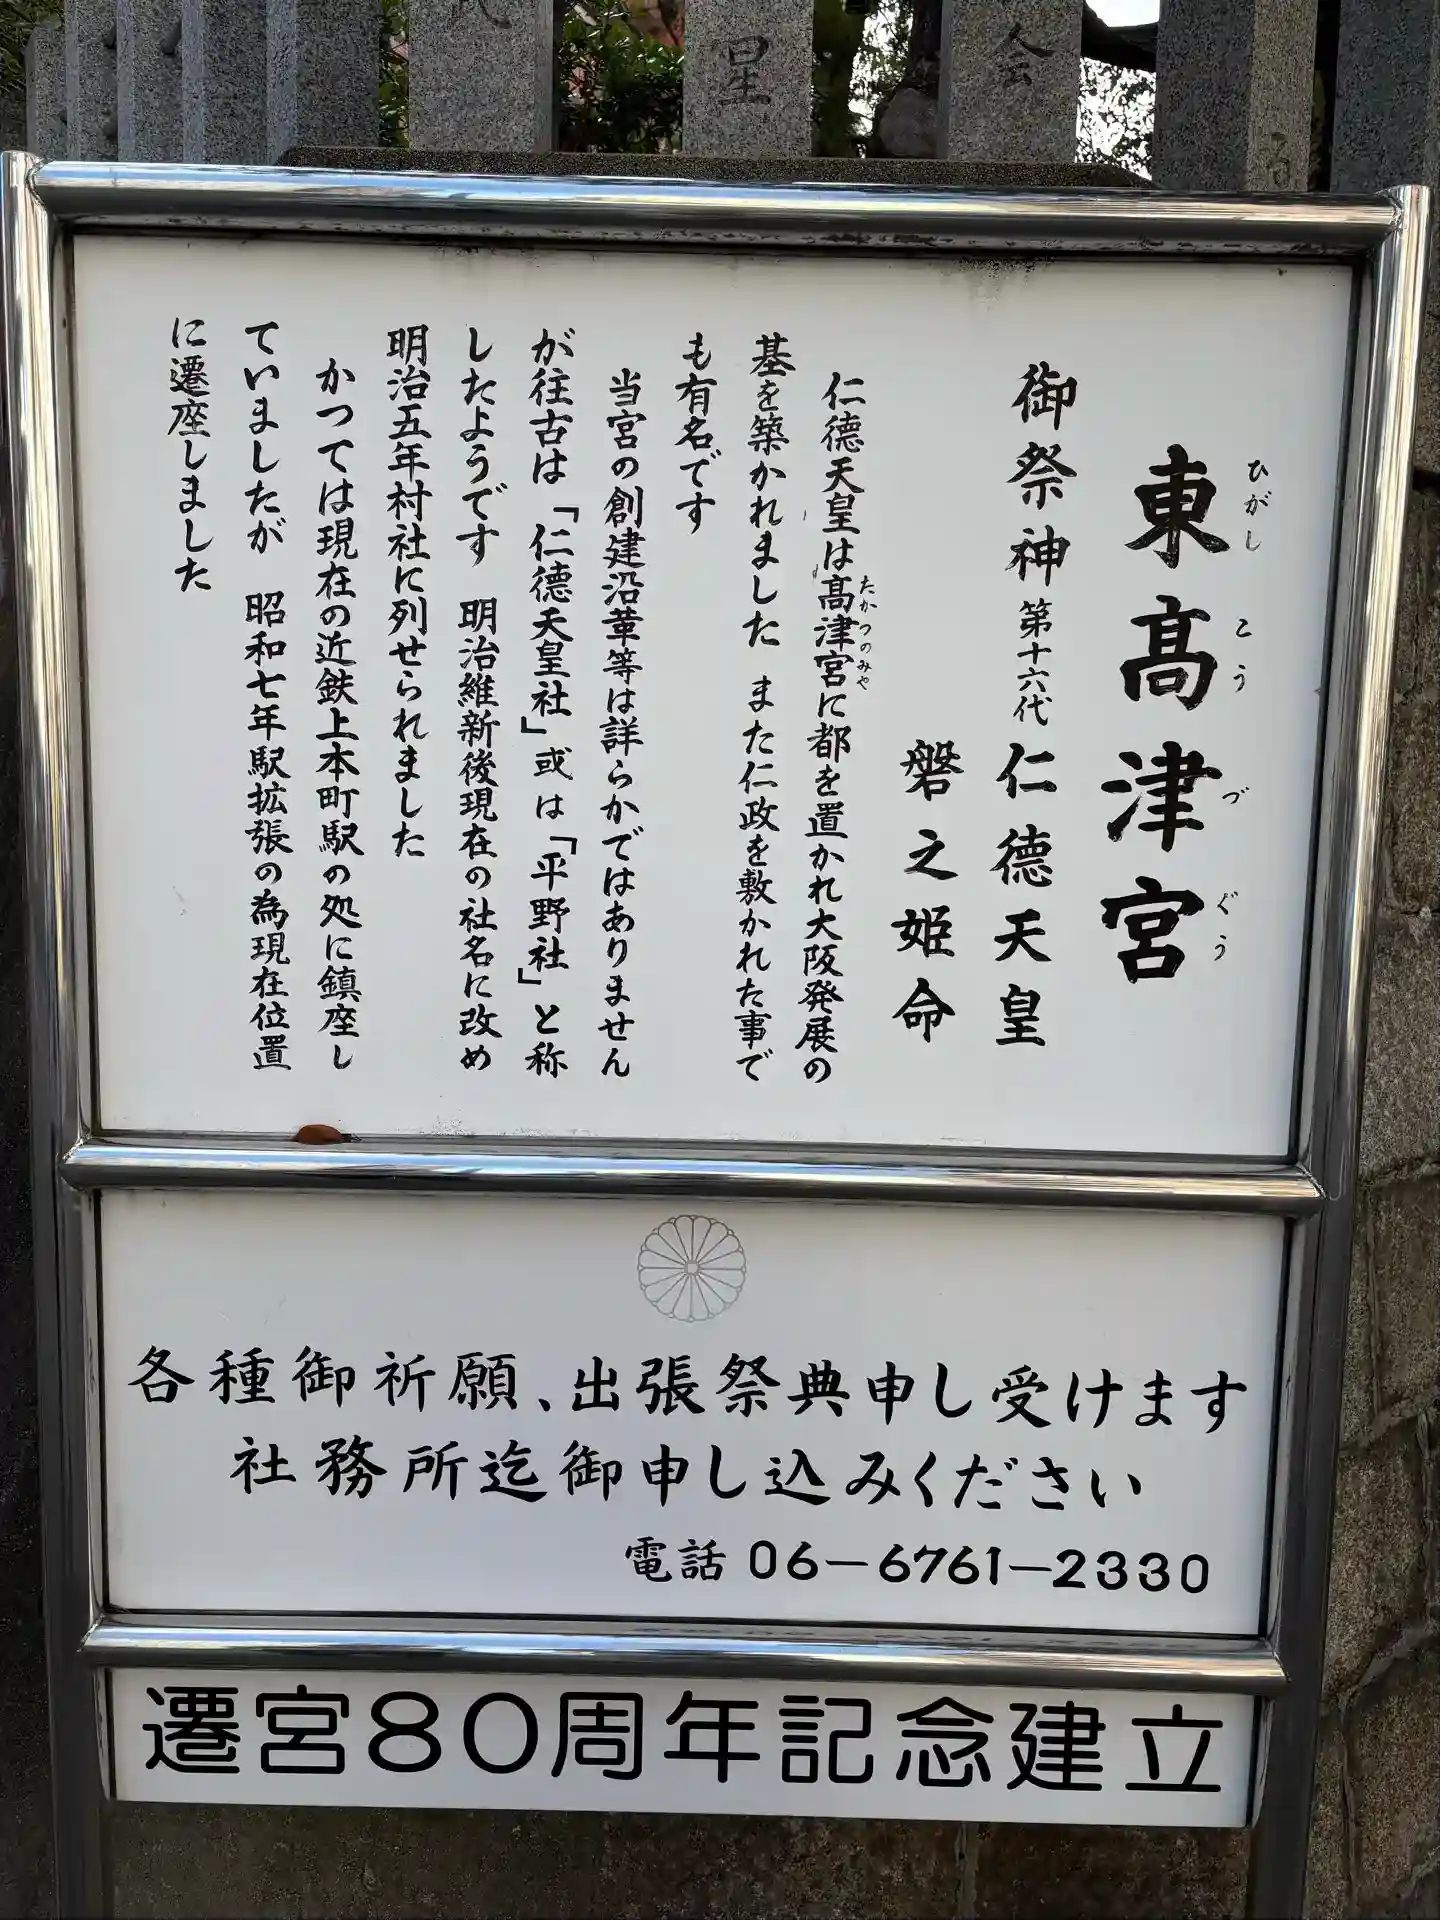 星
会
東高津宮
ひがしこうづぐう
御祭神 第十六代 仁德天皇
磐之姫命
仁德天皇は髙津宮に都を置かれ大阪発展の
たかつのみや
基を築かれました また仁政を敷かれた事で
も有名です
当宮の創建沿革等は詳らかではありません
が往古は「仁德天皇社」或は「平野社」と称
したようです 明治維新後現在の社名に改め
明治五年村社に列せられました
かつては現在の近鉄上本町駅の処に鎮座し
ていましたが 昭和七年駅拡張の為現在位置
に遷座しました
各種御祈願、出張祭典申し受けます
社務所迄御申し込みください
電話 06-6761-2330
遷宮80周年記念建立